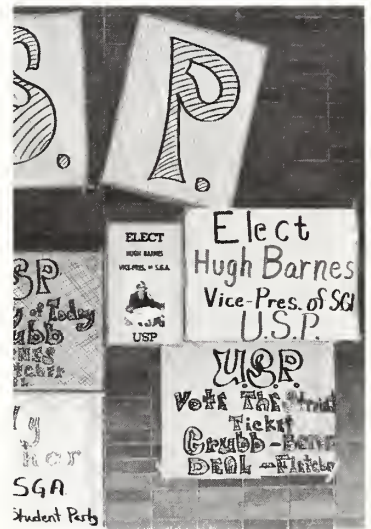 S. P.
ELECT
HUGH BARNES
VICE-PRES. of S.G.A.
USP
Elect
Hugh Barnes
Vice-Pres. of SGA
U.S.P.
SP
of Today
ubb
U.S.P.
Vote The
Ticket
Grubb -
DEAL - Fletcher
SGA
Student Party